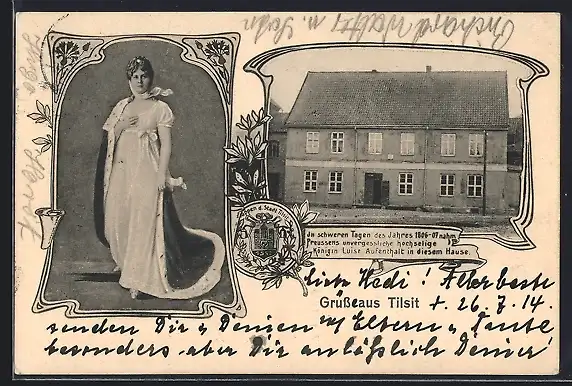 Richard Waltz u. Sohn
In schweren Tagen des Jahres 1806-07 nahm
Preussens unvergessliche hochselige
Königin Luise Aufenthalt in diesem Hause.
Grüße aus Tilsit
Liebe Hedi! Allerbeste
+. 26. 7. 14.
senden Dir u. Deinen Eltern u. Tante
besonders aber Dir anläßlich Deiner